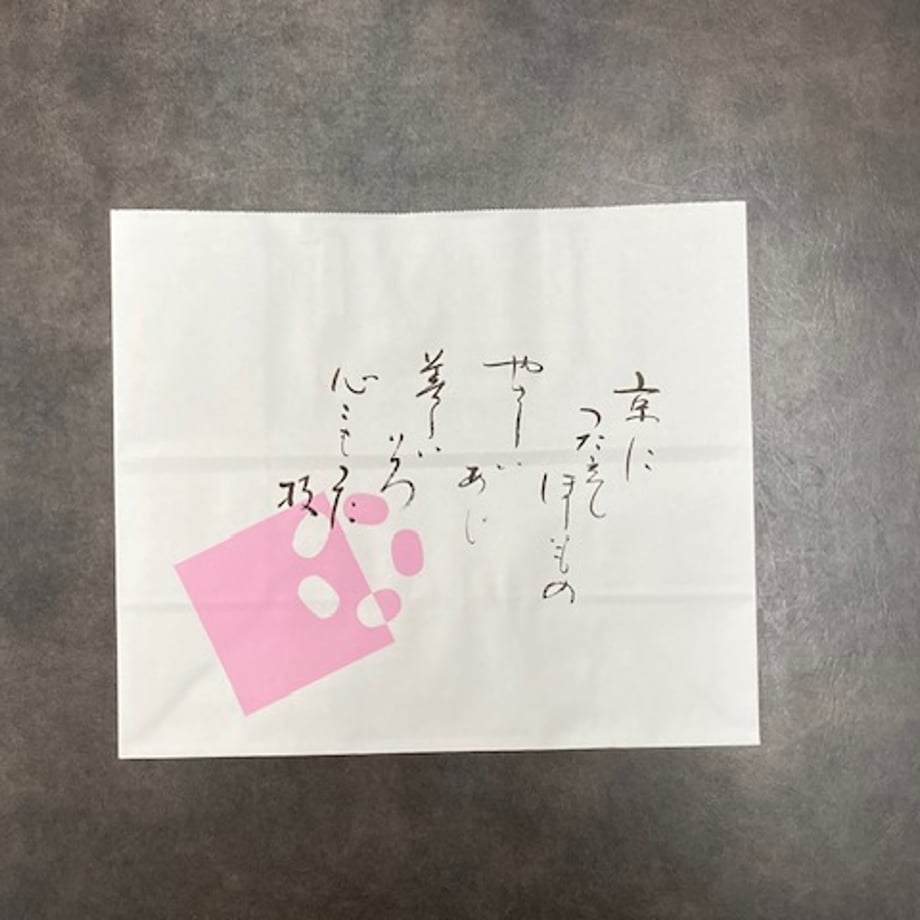 京に
つたえて
やさしい
あじ
美しい
いろ
心こもった
技